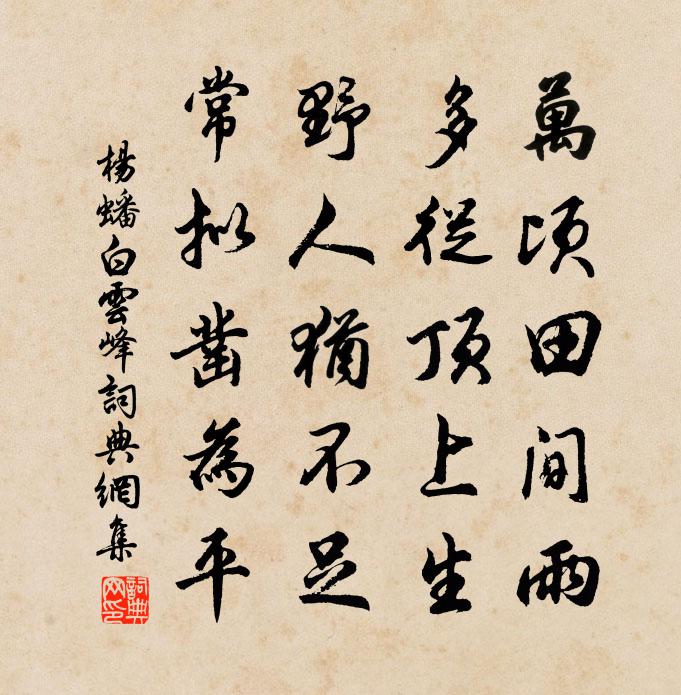 萬頃田間雨
多從頂上生
野人猶不足
常拟凿為平
楊蟠白雲峰詞典網集
詞典网印